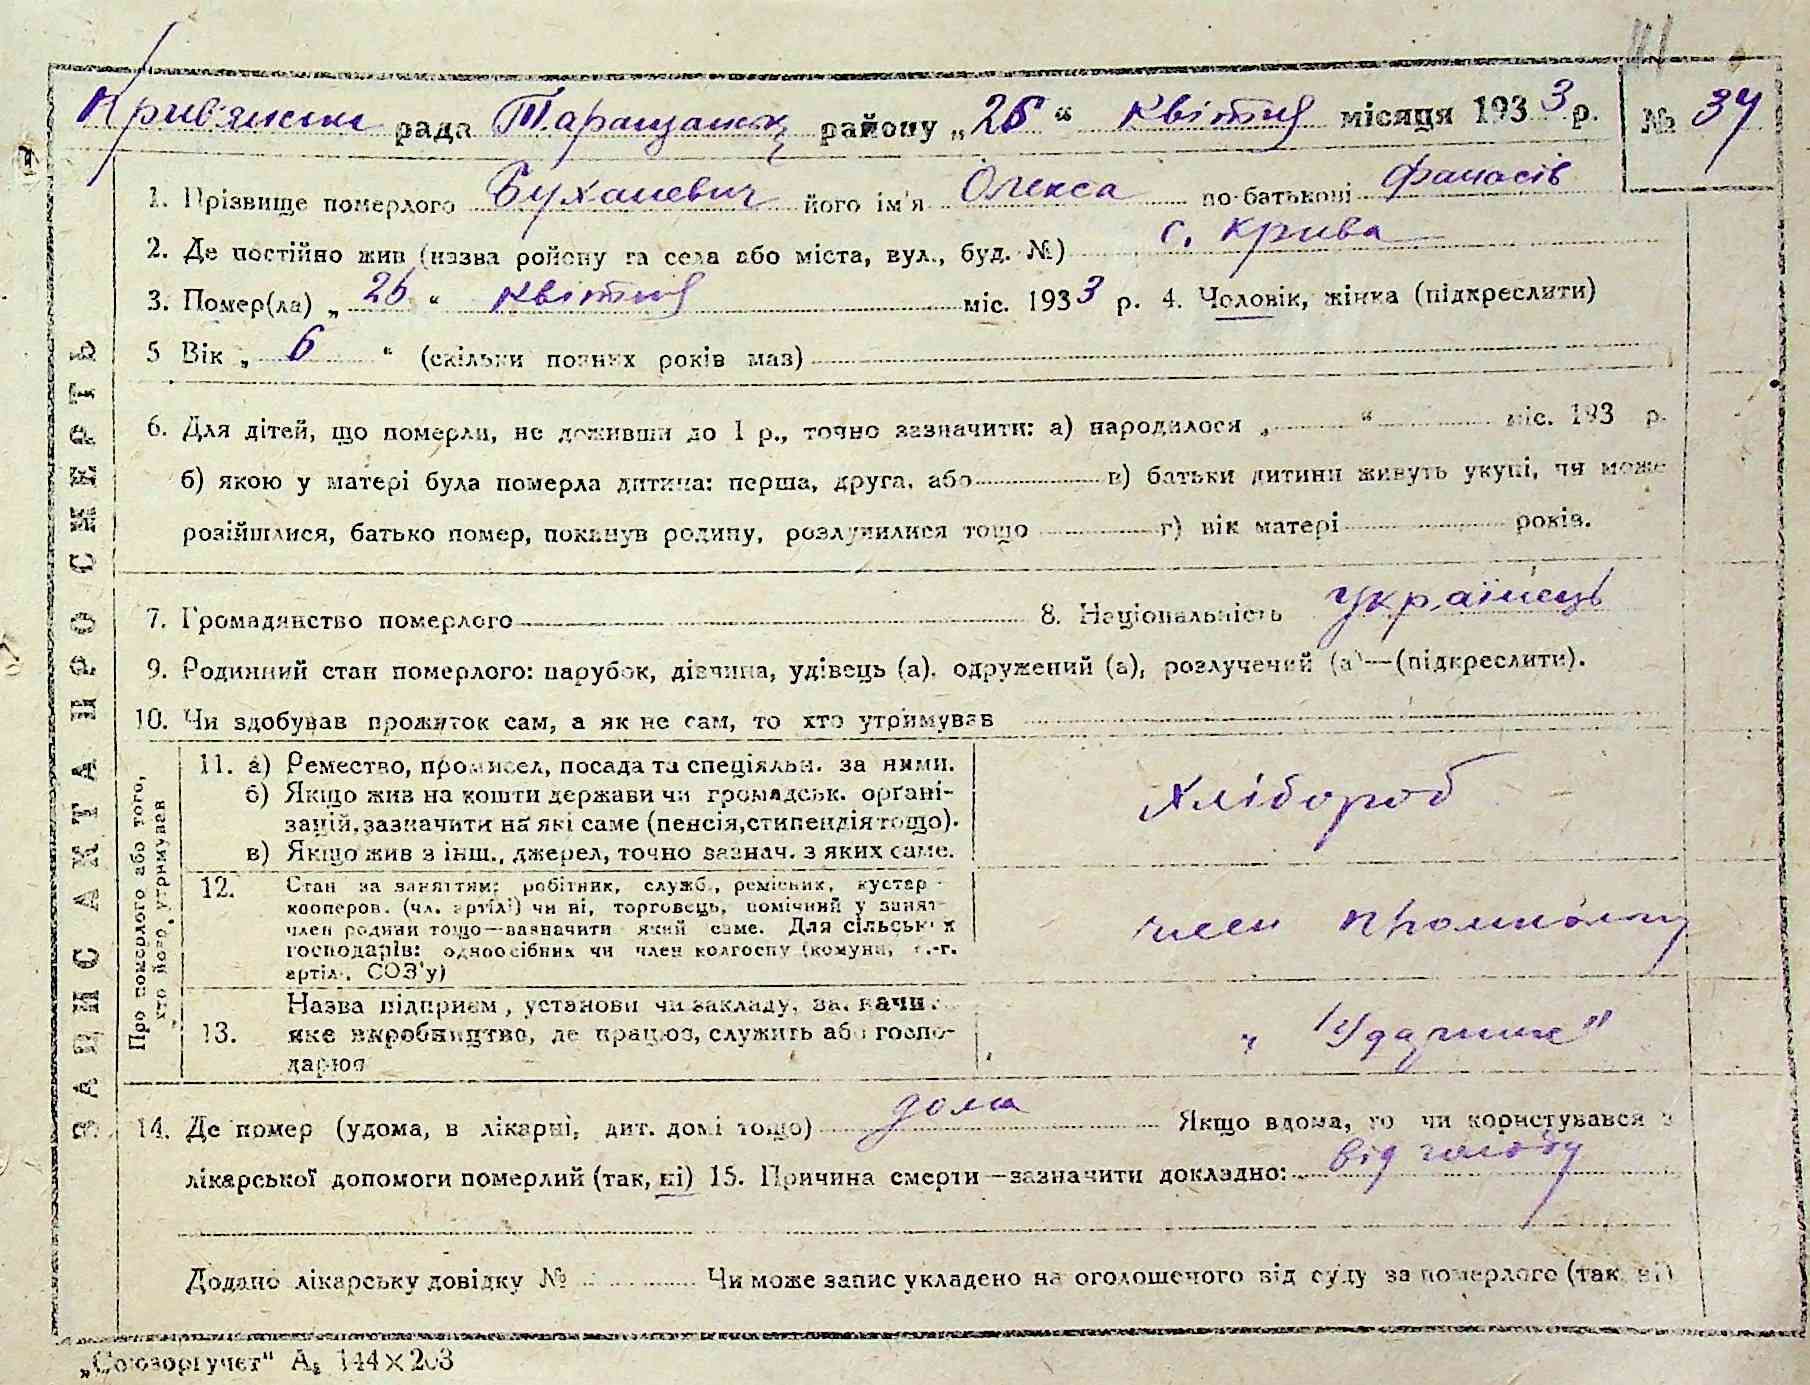 Крив'янська рада Таращанськ району „26“ Квітня місяця 1933 р. № 34
1. Прізвище померлого Буханевич його ім'я Олекса по-батькові Фанасів
2. Де постійно жив (назва ройону та села або міста, вул., буд. №) с. Крива
3. Помер(ла) „26“ квітня міс. 1933 р. 4. Чоловік, жінка (підкреслити)
5 Вік „6“ (скільки повних років маз)
6. Для дітей, що померли, не доживши до 1 р., точно зазначити: а) народилося „ “ міс. 193 р.
б) якою у матері була померла дитина: перша, друга, або в) батьки дитини живуть укупі, чи може
розійшлися, батько помер, покинув родину, розлучилися тощо г) вік матері років.
7. Громадянство померлого 8. Національність Українець
9. Родинний стан померлого: парубок, дівчина, удівець (а), одружений (а), розлучений (а)—(підкреслити).
10. Чи здобував прожиток сам, а як не сам, то хто утримував
ЗАПИС АКТА ПРО СМЕРТЬ
Про померлого або того,
хто його утримував
11. а) Ремество, промисел, посада та спеціяльн. за ними.
б) Якщо жив на кошти держави чи громадськ. органі-
зацій, зазначити на які саме (пенсія, стипендія тощо).
в) Якщо жив з інш., джерел, точно зазнач. з яких саме.
Хлібороб
12. Стан за заняттям: робітник, служб., ремісник, кустар
кооперов. (чл. артілі) чи ні, торговець, помічний у занят-
член родини тощо—зазначити який саме. Для сільськ х
господарів: одноосібник чи член колгоспу (комуни, с.-г.
артіл., СОЗ'у)
член
13. Назва підприєм, установи чи закладу, зазначи
яке виробництво, де працює, служить або госпо-
дарює
„Ударник"
14. Де помер (удома, в лікарні, дит. домі тощо) дома Якщо вдома, то чи користувався з
лікарської допомоги померлий (так, ні) 15. Причина смерти—зазначити докладно: від голоду
Додано лікарську довідку № Чи може запис укладено на оголошеного від суду за померлого (так, ні)
„Союзоргучет" А₅ 144×203